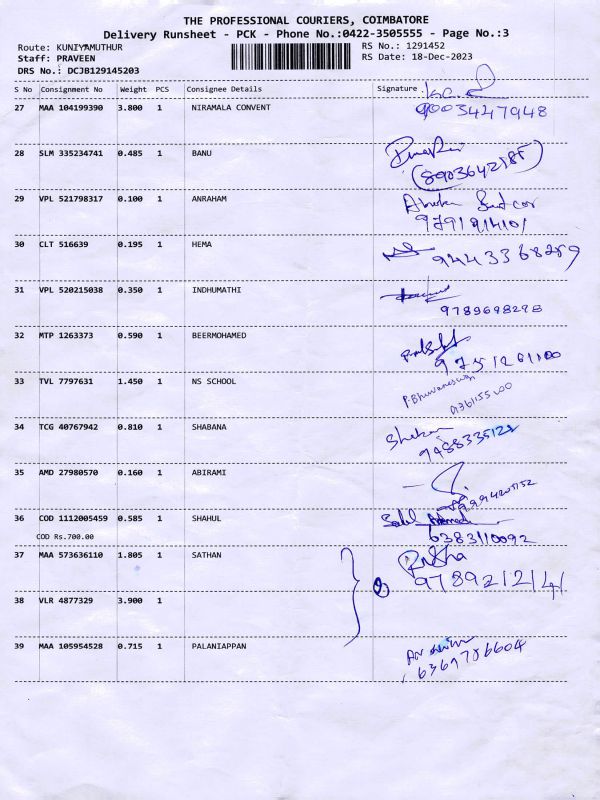 THE PROFESSIONAL COURIERS, COIMBATORE
Delivery Runsheet - PCK - Phone No.:0422-3505555 - Page No.:3
Route: KUNIYAMUTHUR RS No.: 1291452
Staff: PRAVEEN RS Date: 18-Dec-2023
DRS No.: DCJB129145203
S No Consignment No Weight PCS Consignee Details Signature
27 MAA 104199390 3.800 1 NIRAMALA CONVENT 9003447948
28 SLM 335234741 0.485 1 BANU
29 VPL 521798317 0.100 1 ANRAHAM
30 CLT 516639 0.195 1 HEMA 9443368289
31 VPL 520215038 0.350 1 INDHUMATHI 9789698298
32 MTP 1263373 0.590 1 BEERMOHAMED 9751261100
33 TVL 7797631 1.450 1 NS SCHOOL P. Bhuvaneswari
34 TCG 40767942 0.810 1 SHABANA
35 AMD 27980570 0.160 1 ABIRAMI
36 COD 1112005459 0.585 1 SHAHUL 6383110092
COD Rs.700.00
37 MAA 573636110 1.805 1 SATHAN
38 VLR 4877329 3.900 1
39 MAA 105954528 0.715 1 PALANIAPPAN 6369786604